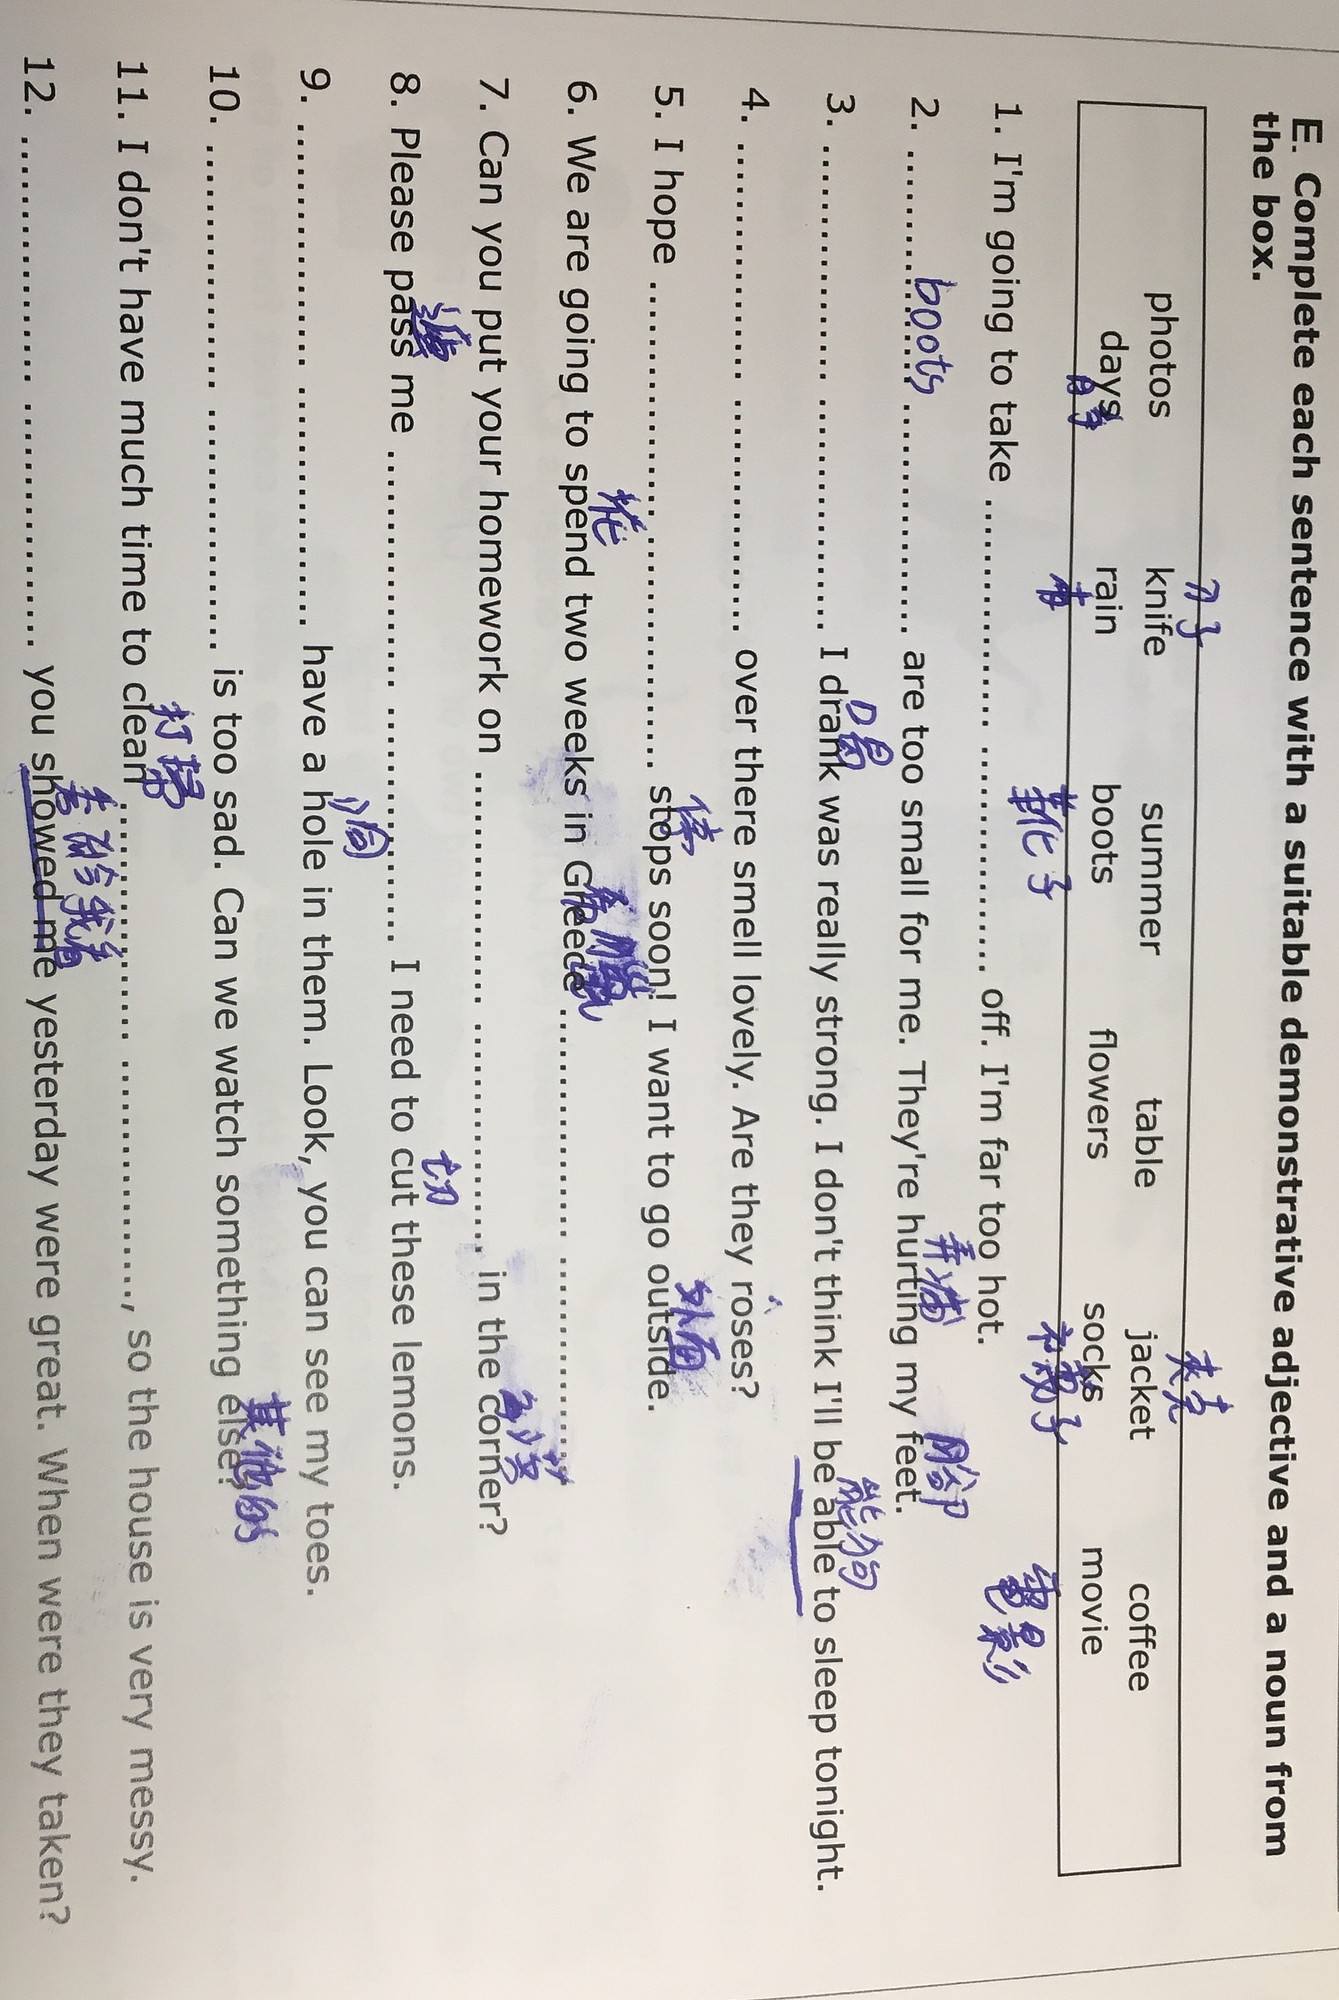 E. Complete each sentence with a suitable demonstrative adjective and a noun from
the box.
刀子 夹克
photos knife summer table jacket coffee
days rain boots flowers socks movie
日子 雨 靴子 袜子 電影
1. I'm going to take ........................ ........................ off. I'm far too hot.
弄痛 脚
2. boots ........................ are too small for me. They're hurting my feet.
喝 能够
3. ........................ ........................ I drank was really strong. I don't think I'll be able to sleep tonight.
4. ........................ ........................ over there smell lovely. Are they roses?
停 外面
5. I hope ........................ ........................ stops soon! I want to go outside.
花 希臘
6. We are going to spend two weeks in Greece ........................ ........................
7. Can you put your homework on ........................ ........................, in the corner?
遞 切
8. Please pass me ........................ ......................... I need to cut these lemons.
洞
9. ........................ ........................ have a hole in them. Look, you can see my toes.
其他的
10. ........................ ........................ is too sad. Can we watch something else?
打掃
11. I don't have much time to clean ........................ ........................, so the house is very messy.
12. ........................ ........................ you showed me yesterday were great. When were they taken?